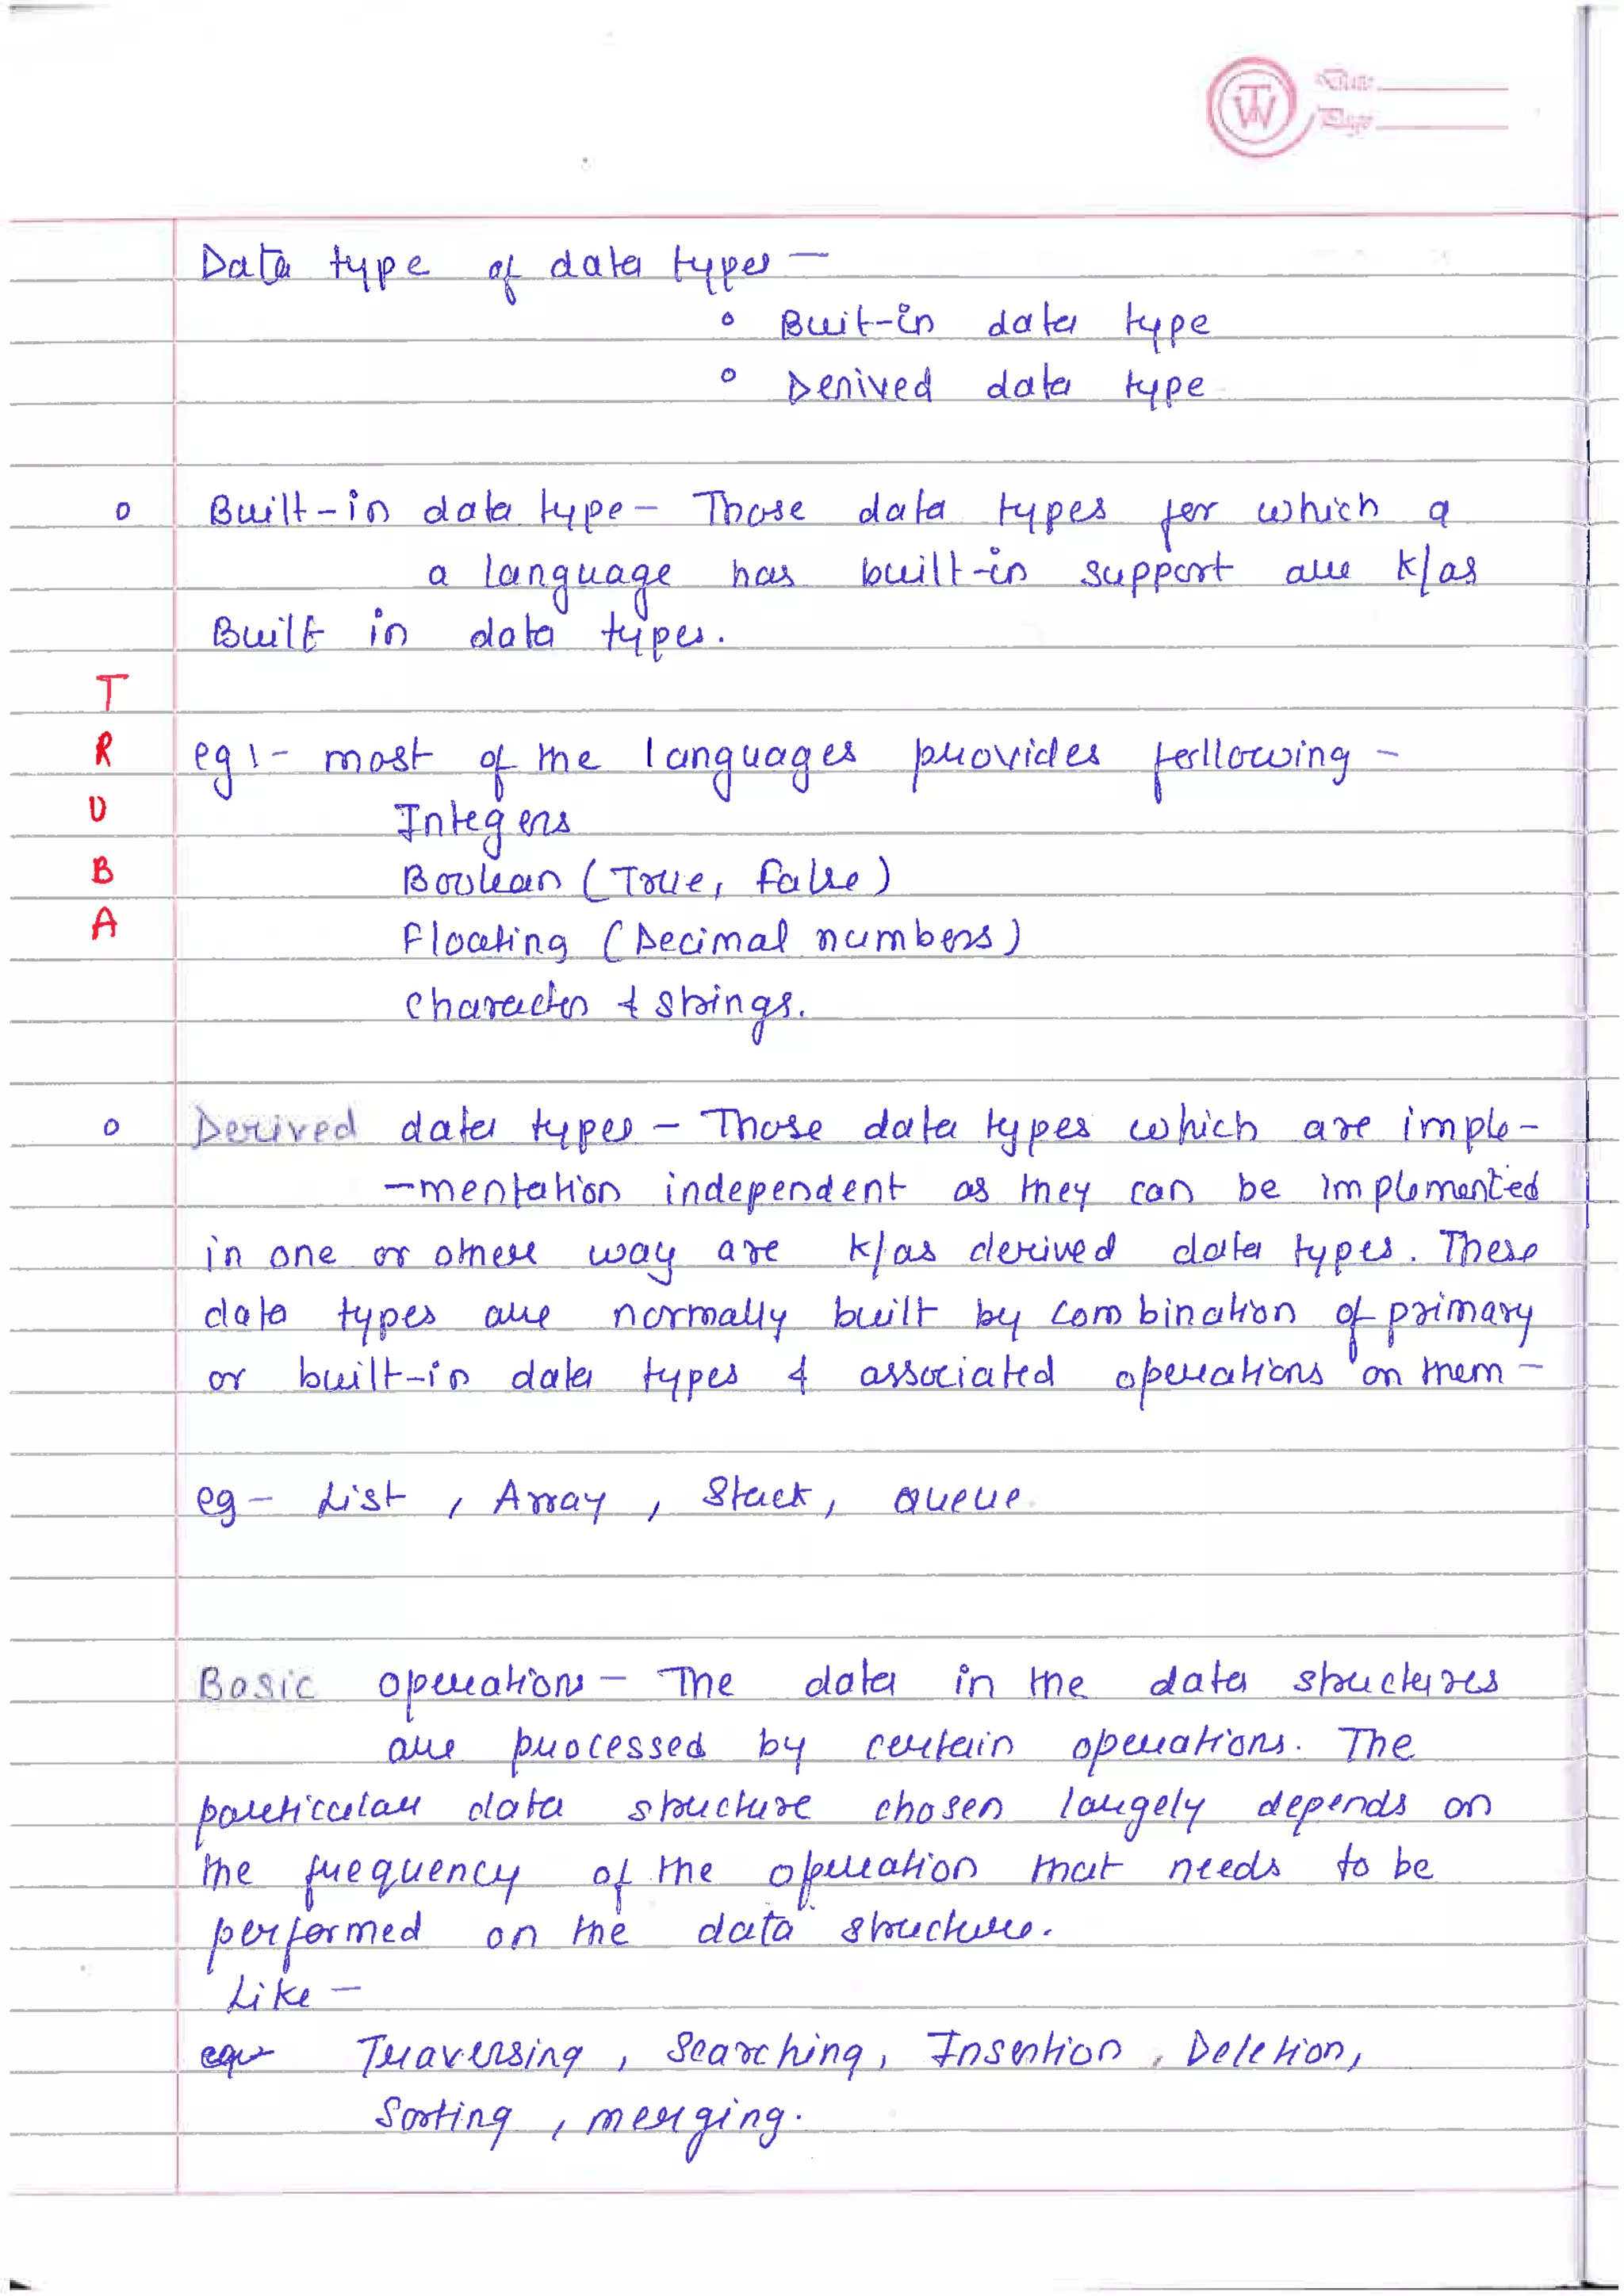 TW
Date
Page
Data type of data types —
° Buit-in data type
° Derived data type
° Built-in data type - Those data types for which a
a language has built-in support are k/as
Built in data types.
T
R
U
B
A
eg!- most of the languages provides following -
Integers
Boolean (True, False)
Floating (Decimal numbers)
Character & strings.
° Derived data types - Those data types which are imple-
-mentation independent as they can be implemented
in one or other way are k/as derived data types. These
data types are normally built by combination of primary
or built-in data types & associated operations on them -
eg - List , Array , Stack , Queue
Basic operations - The data in the data structures
are processed by certain operations. The
particular data structure chosen largely depends on
the frequency of the operation that needs to be
performed on the data structure.
Like -
Traversing , Searching, Insertion , Deletion,
Sorting , merging.